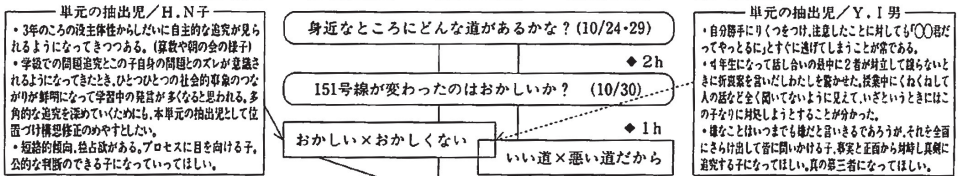 単元の抽出児／H.N子
・3年のころの没主体性からしだいに自主的な追究が見ら
れるようになってきつつある。(算数や朝の会の様子)
・学級での問題追究とこの子自身の問題とのズレが意識さ
れるようになってきたとき、ひとつひとつの社会的事象のつな
がりが鮮明になって学習中の発言が多くなると思われる。多
角的な追究を深めていくためにも、本単元の抽出児として位
置づけ構想修正のめやすとしたい。
・短絡的傾向、独占欲がある。プロセスに目を向ける子、
公的な判断のできる子になっていってほしい。
身近なところにどんな道があるかな？(10/24・29)
◆2h
151号線が変わったのはおかしいか？ (10/30)
◆1h
おかしい×おかしくない
いい道×悪い道だから
単元の抽出児／Y.I男
・自分勝手にりくつをつけ、注意したことに対しても「〇〇君だ
ってやっとるに」とすぐに逃げてしまうことが常である。
・4年生になって話し合いの最中に2者が対立して譲らないと
きに折衷案を言いだしわたしを驚かせた。授業中にくねくねして
人の話など全く聞いてないように見えて、いざというときにはこ
の子なりに対処しようとすることが分かった。
・嫌なことはいつまでも嫌だと言いきるであろうが、それを全面
にさらけ出して皆に問いかける子、事実と正面から対峙し真剣に
追究する子になってほしい。真の第三者になってほしい。